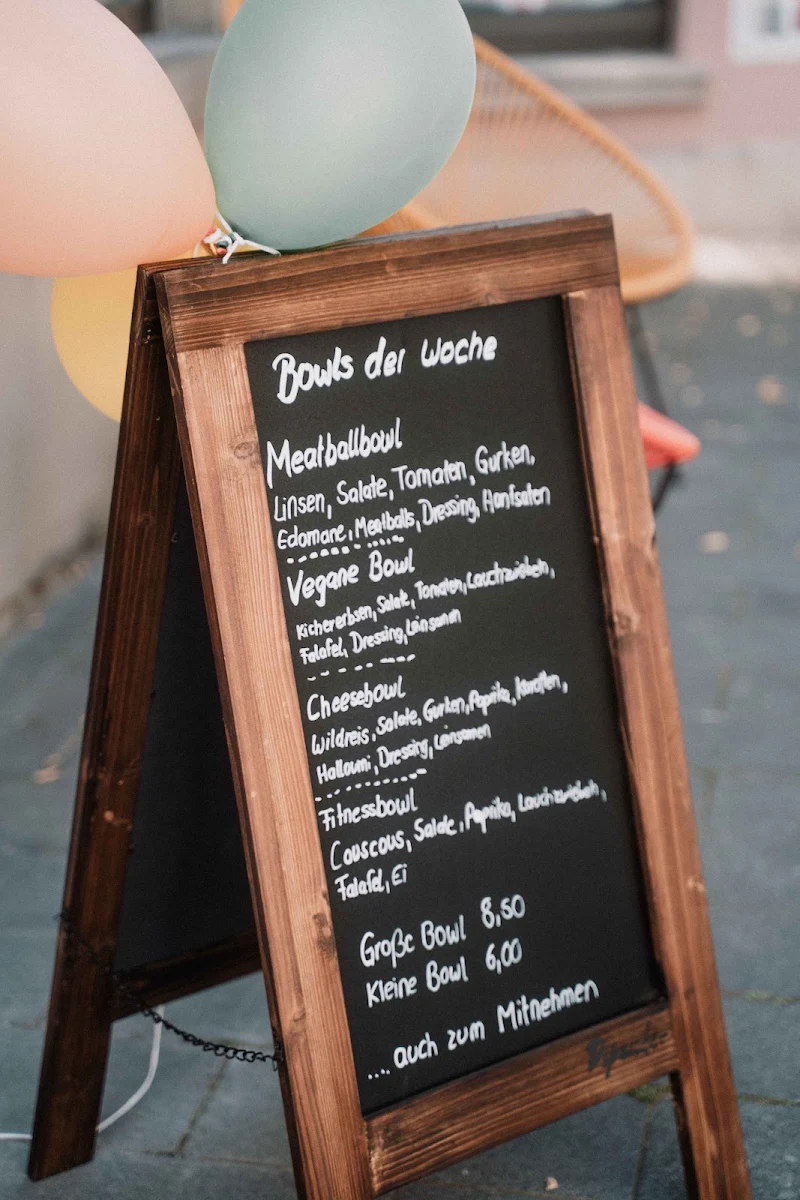 Bowls der Woche
Meatballbowl
Linsen, Salate, Tomaten, Gurken,
Edamame, Meatballs, Dressing, Hanfsaten
Vegane Bowl
Kichererbsen, Salat, Tomaten, Lauchzwiebeln,
Falafel, Dressing, Leinsamen
Cheesebowl
Wildreis, Salate, Gurken, Paprika, Karotten,
Halloumi, Dressing, Leinsamen
Fitnessbowl
Couscous, Salate, Paprika, Lauchzwiebeln,
Falafel, Ei
Große Bowl 8,50
Kleine Bowl 6,00
.... auch zum Mitnehmen